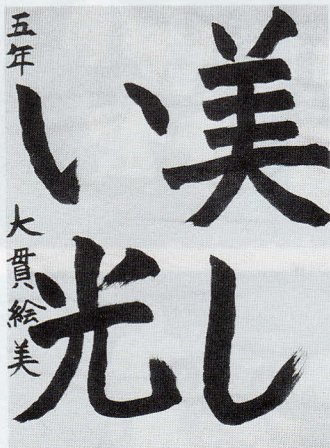 美し
い光
五年 大貫絵美